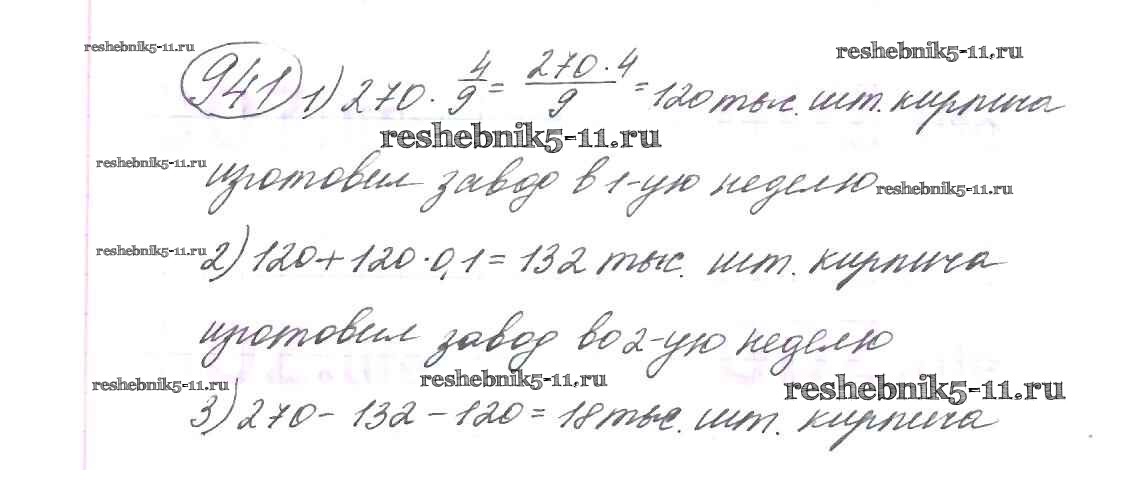 reshebnik5-11.ru
reshebnik5-11.ru
941 1) 270 · 4/9 = 270 · 4/9 = 120 тыс. шт. кирпича
reshebnik5-11.ru
reshebnik5-11.ru
изготовил завод в 1-ую неделю
reshebnik5-11.ru
reshebnik5-11.ru
2) 120 + 120 · 0,1 = 132 тыс. шт. кирпича
изготовил завод во 2-ую неделю
reshebnik5-11.ru
reshebnik5-11.ru
reshebnik5-11.ru
3) 270 - 132 - 120 = 18 тыс. шт. кирпича